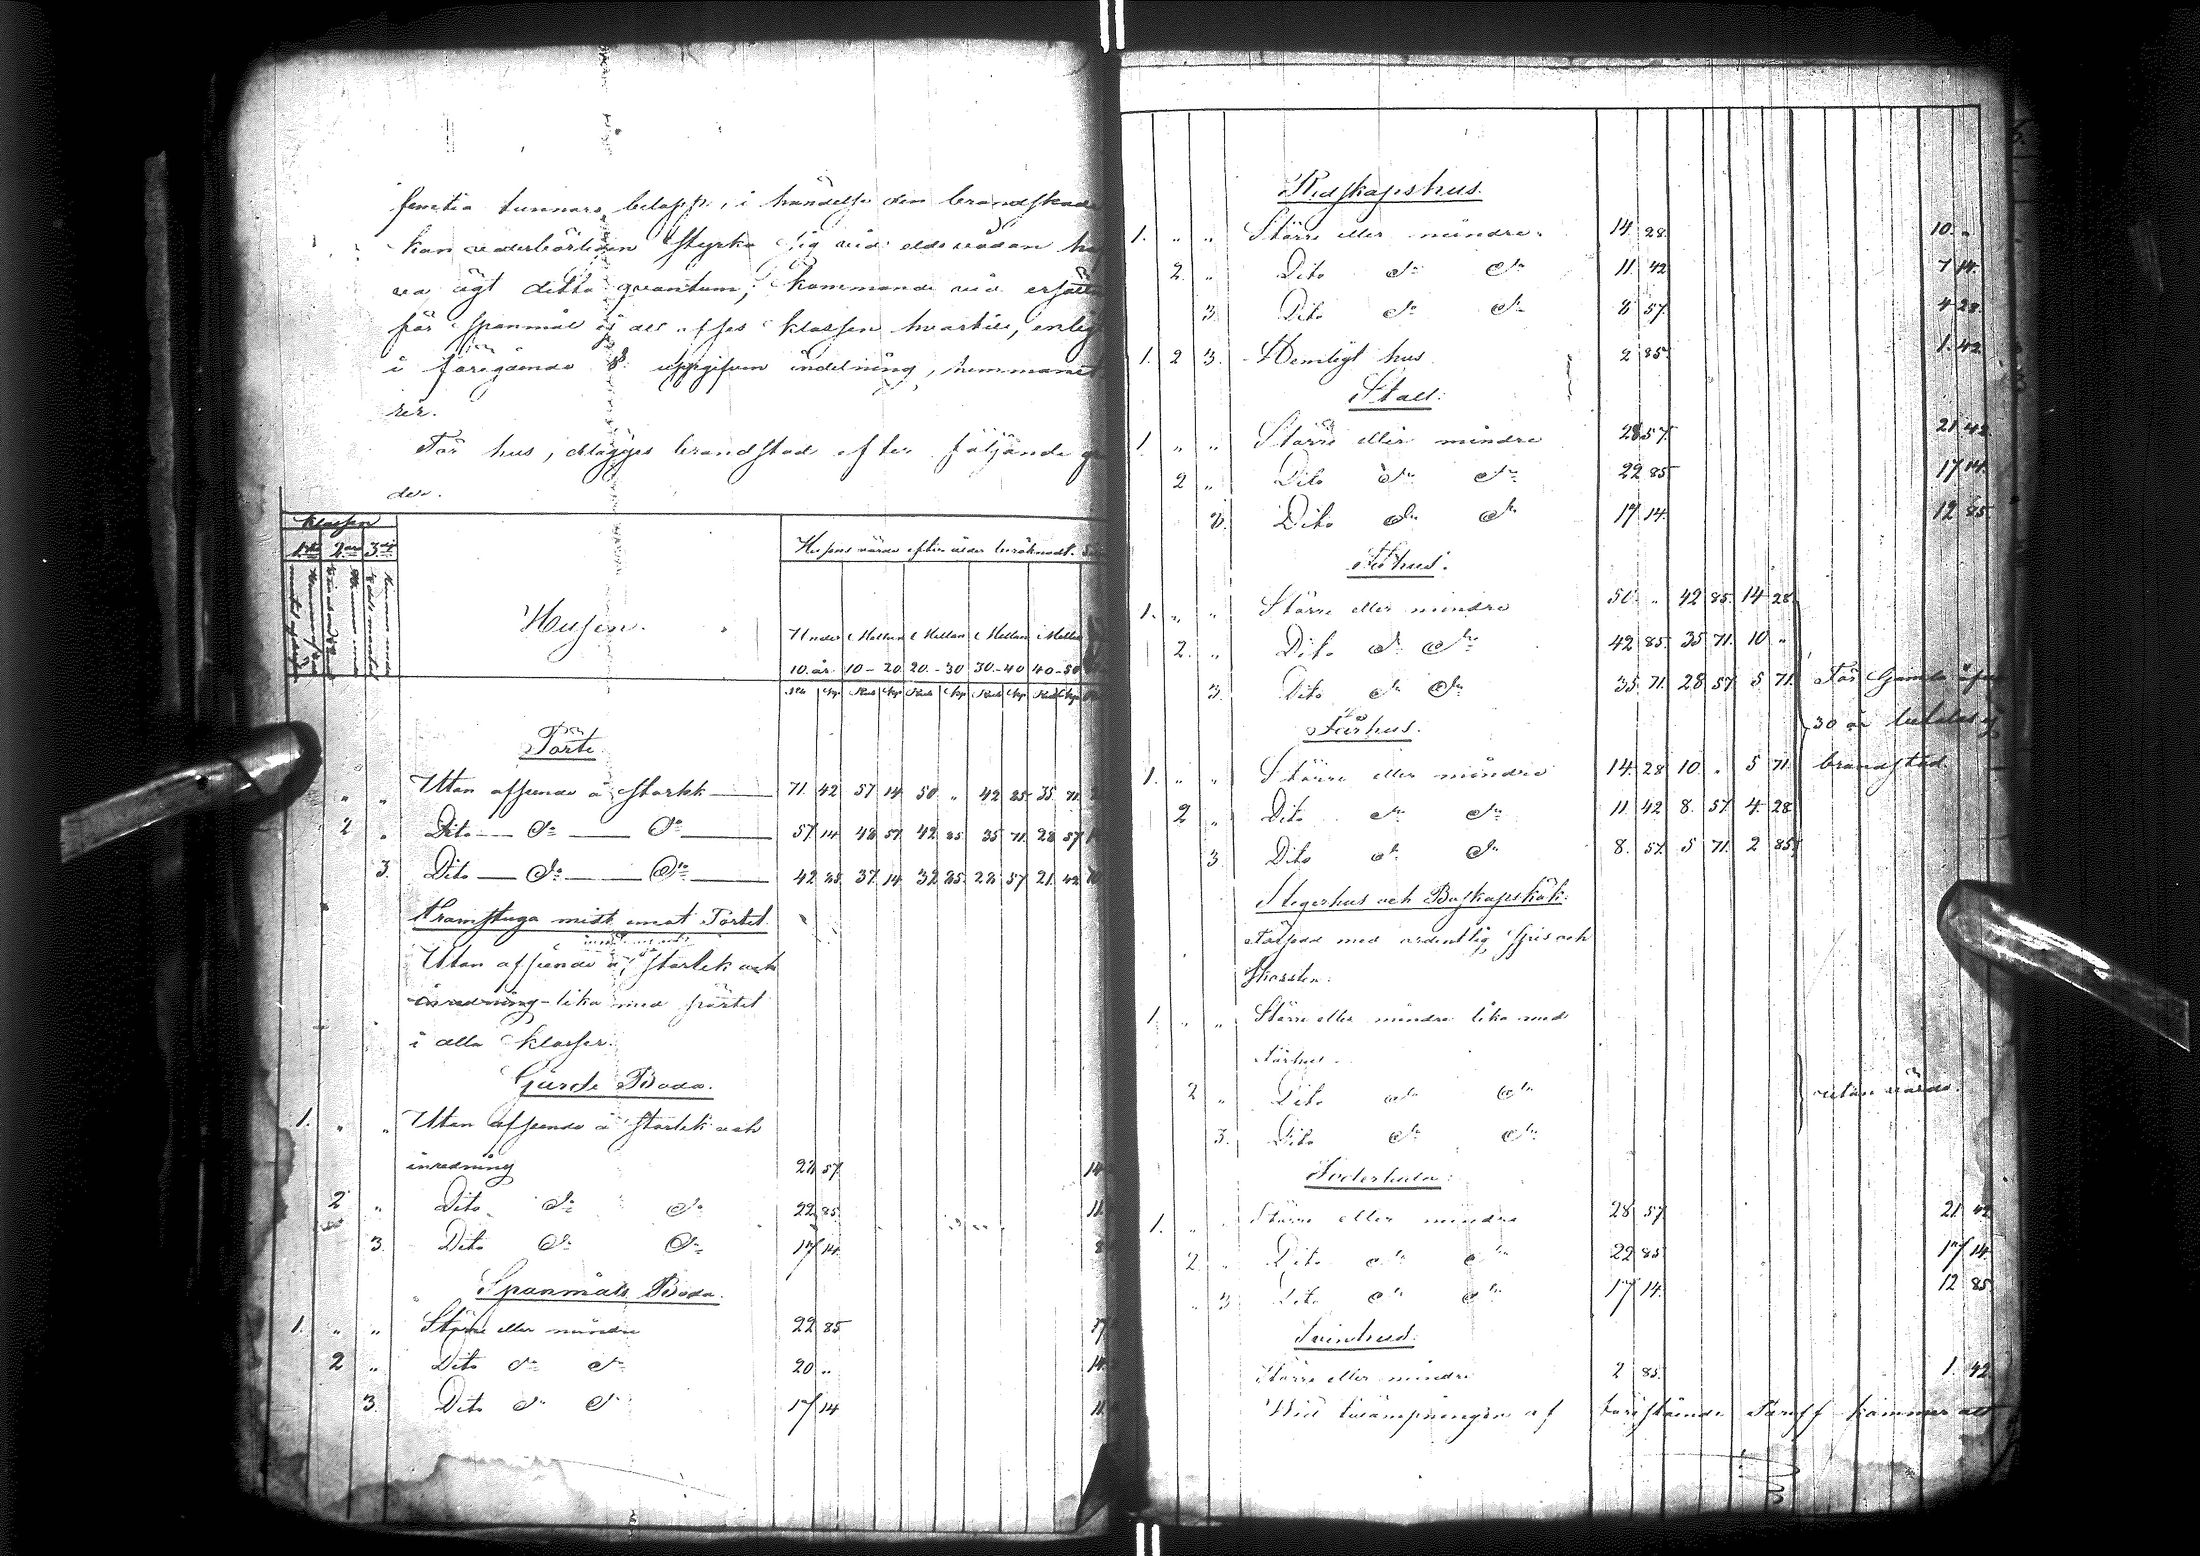 femtio tunnors belopp, i händelse den brandskade
kan vederbörligen styrka sig vid eldsvådan ha
va ägt detta quantum; kommande vid ersätt
för Spanmål af alla klassen hvartill, enlig
i föregående § uppgifven indelning, hemmanet
rer.
För hus, erlägges brandstod efter följande gr
der.
Klassen
1sta 2dra 3dje
Husen.
Husens värde efter ålder beräknadt.
Under Mellan Mellan Mellan Mellan
10. år 10 - 20 20 - 30 30 - 40 40 - 50
Rub Kop Rub Kop Rub Kop Rub Kop Rub Kop
Pörte.
" " Utan afseende å storlek 71 42 57 14 50 " 42 85 35 71
2 " Dito do do 57 14 48 57 42 85 35 71 28 57
3. Dito do do 42 85 37 14 32 85 28 57 21 42
Framstuga midt emot Pörtet
Utan afseende å storlek och
inredning lika med pörtet
i alla klasser.
Gärde Boda.
1. " " Utan afseende å storlek och
inredning 28 57 14
2 " Dito do do 22 85 11
3. Dito do do 17 14 8
Spanmåls Boda.
1. " " Större eller mindre 22 85 17
2 " Dito do do 20 " 14
3. Dito do do 17 14 11
Redskapshus.
1. " " Större eller mindre 14 28 10 "
2 " Dito do do 11 42 7 14
3 Dito do do 8 57 4 28
1. 2 3. Hemligt hus 2 85 1. 42
Stall:
1. " " Större eller mindre 28 57 21 42
2 " Dito do do 22 85 17 14
3. Dito do do 17 14 12 85
Fähus:
1. " " Större eller mindre 50 " 42 85 14 28
2. " Dito do do 42 85 35 71 10 "
3. Dito do do 35 71 28 57 5 71 För Gamla öfver
30 år betalas ej
brandstod
Fårhus.
1. " " Större eller mindre 14 28 10 " 5 71
2 " Dito do do 11 42 8 57 4 28
3. Dito do do 8 57 5 71 2 85
Stegerhus och Boskapskök:
försedd med ordentlig spis och
skorsten.
1. " " Större eller mindre lika med
Fårhus.
2 " Dito do do utan värde.
3. Dito do do
Foderlada:
1. " " Större eller mindre 28 57 21 42
2 " Dito do do 22 85 17 14
" 3 Dito do do 17 14 12 85
Svinhus:
Större eller mindre 2 85 1. 42
Vid tillämpningen af förestående Tariff kommer att